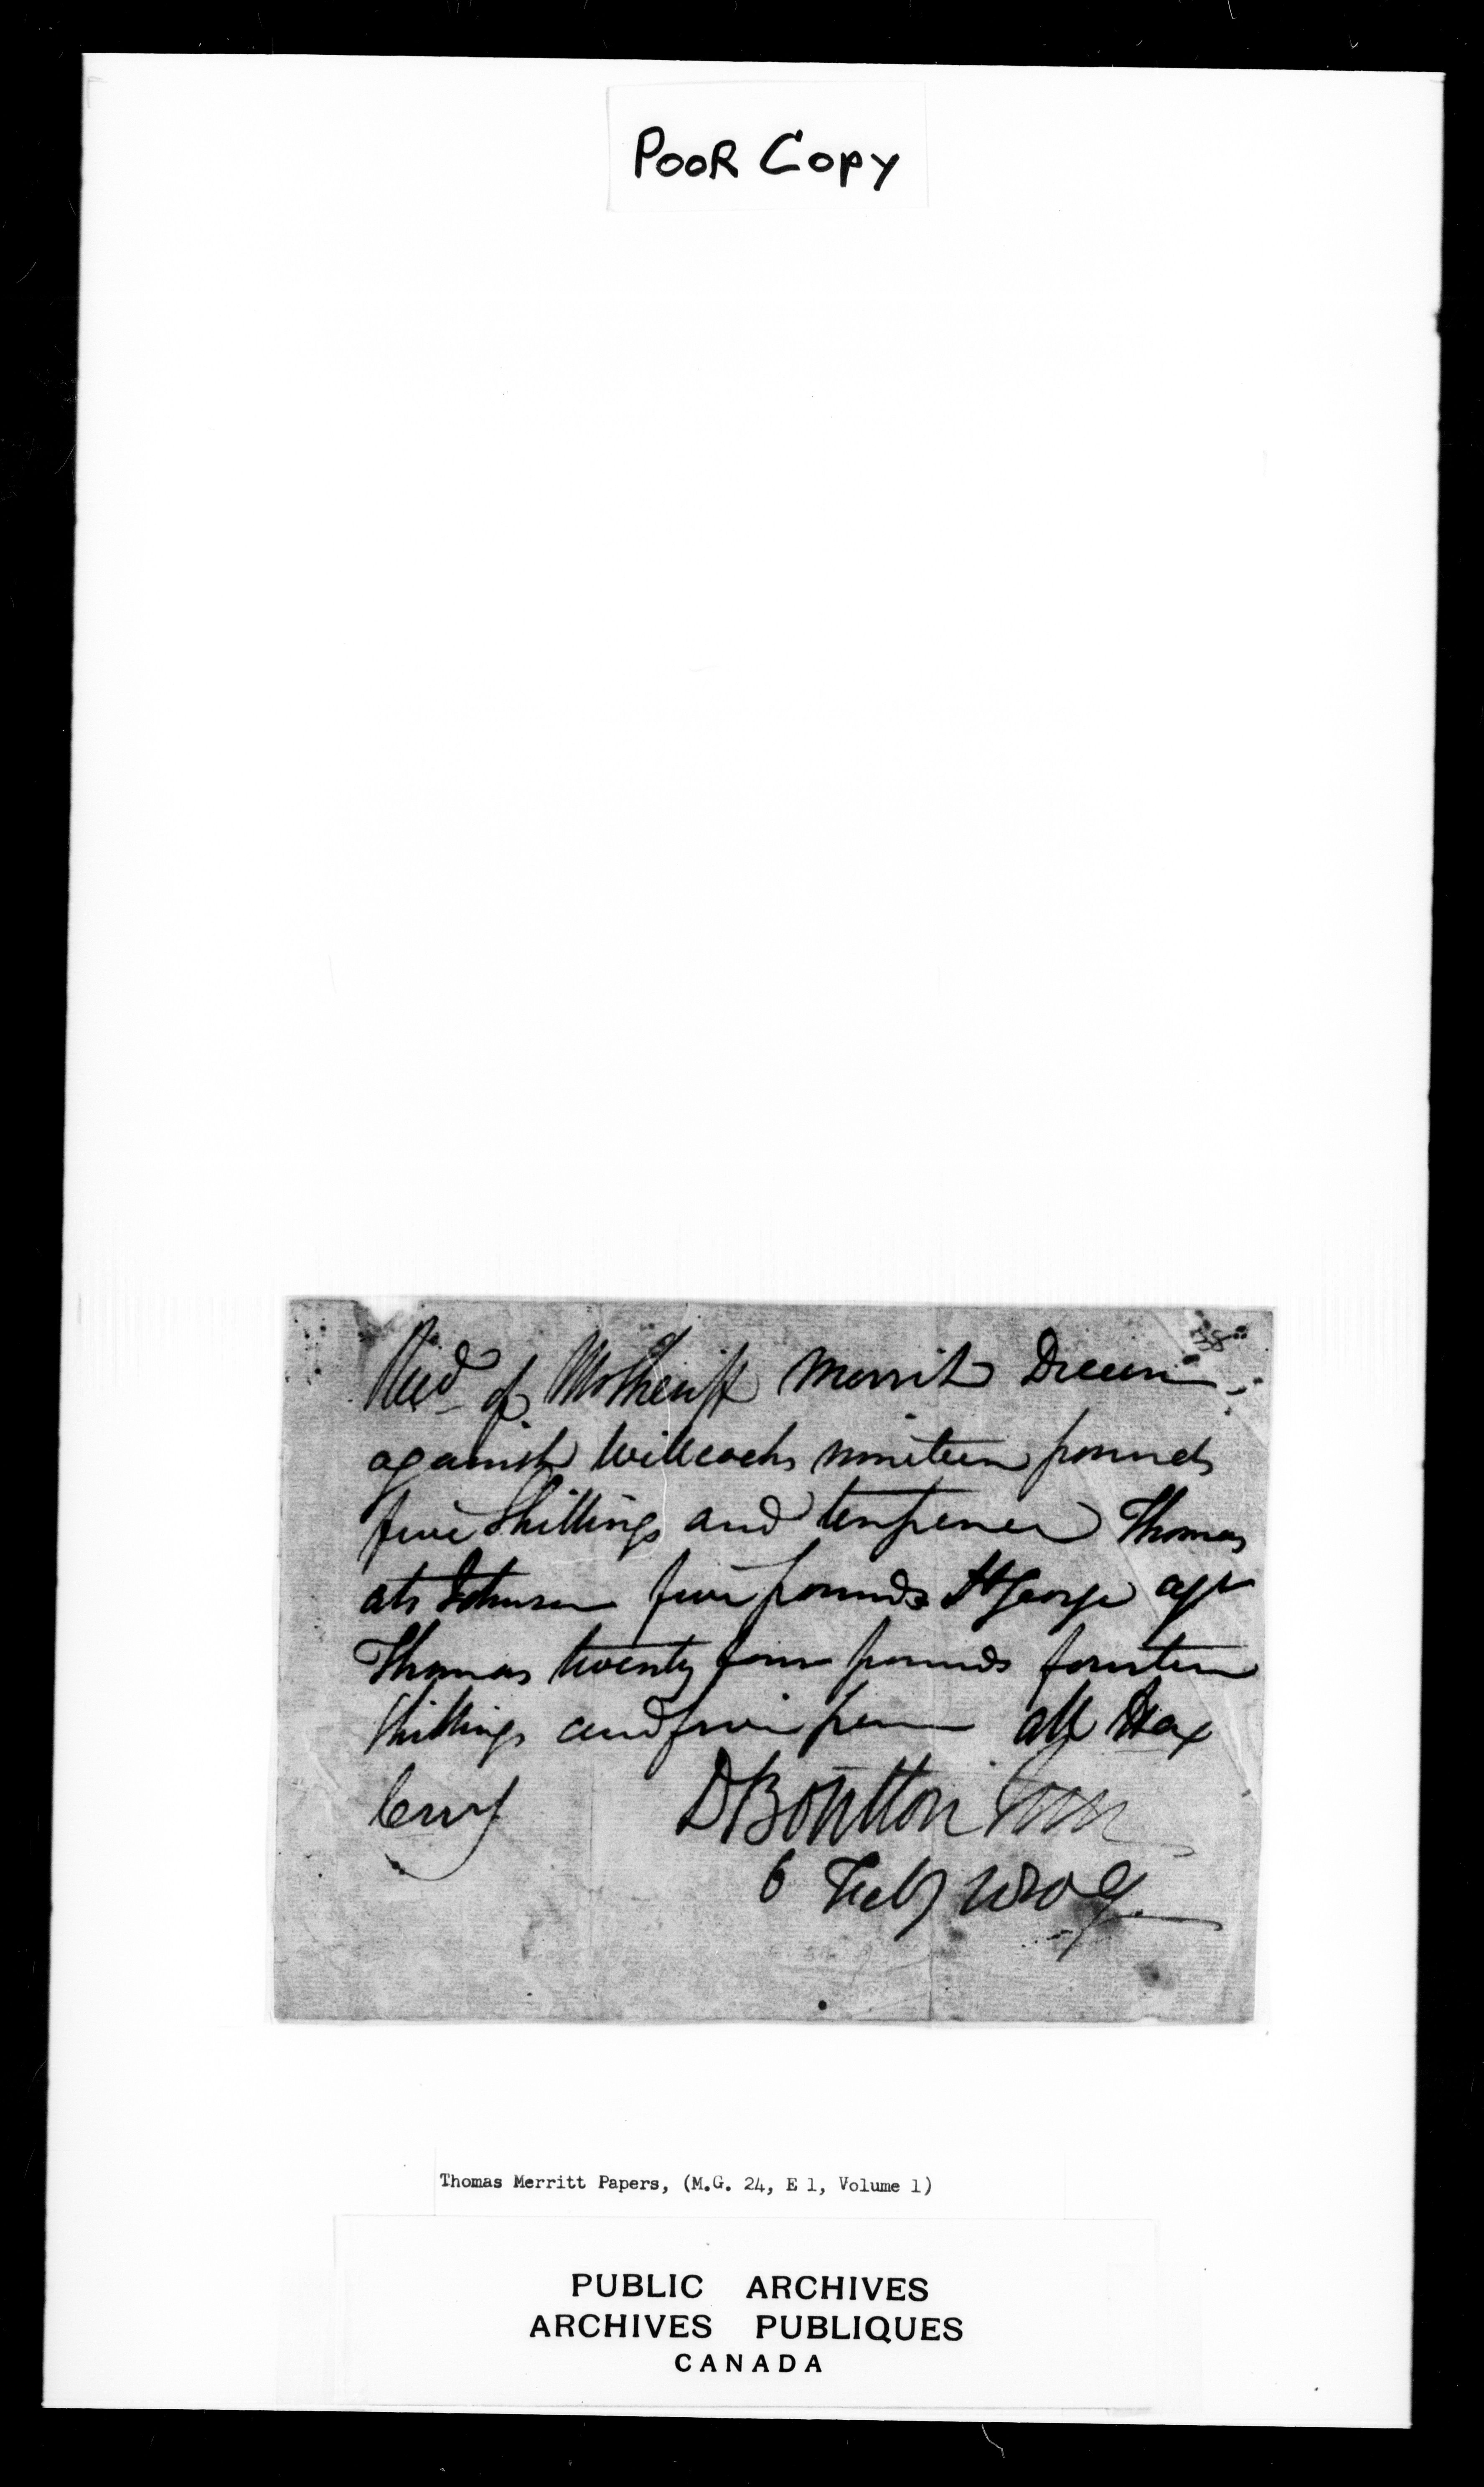 POOR COPY
38
Recd of Mr Sheriff Merrit
against Willcocks nineteen pounds
five Shillings and tenpence Thomas
ats Johnson five pounds St George agt
Thomas twenty four pounds fourteen
Shillings and five pence all Hax
Curry
D Boulton
6 Feby
Thomas Merritt Papers, (M.G. 24, E 1, Volume 1)
PUBLIC ARCHIVES
ARCHIVES PUBLIQUES
CANADA